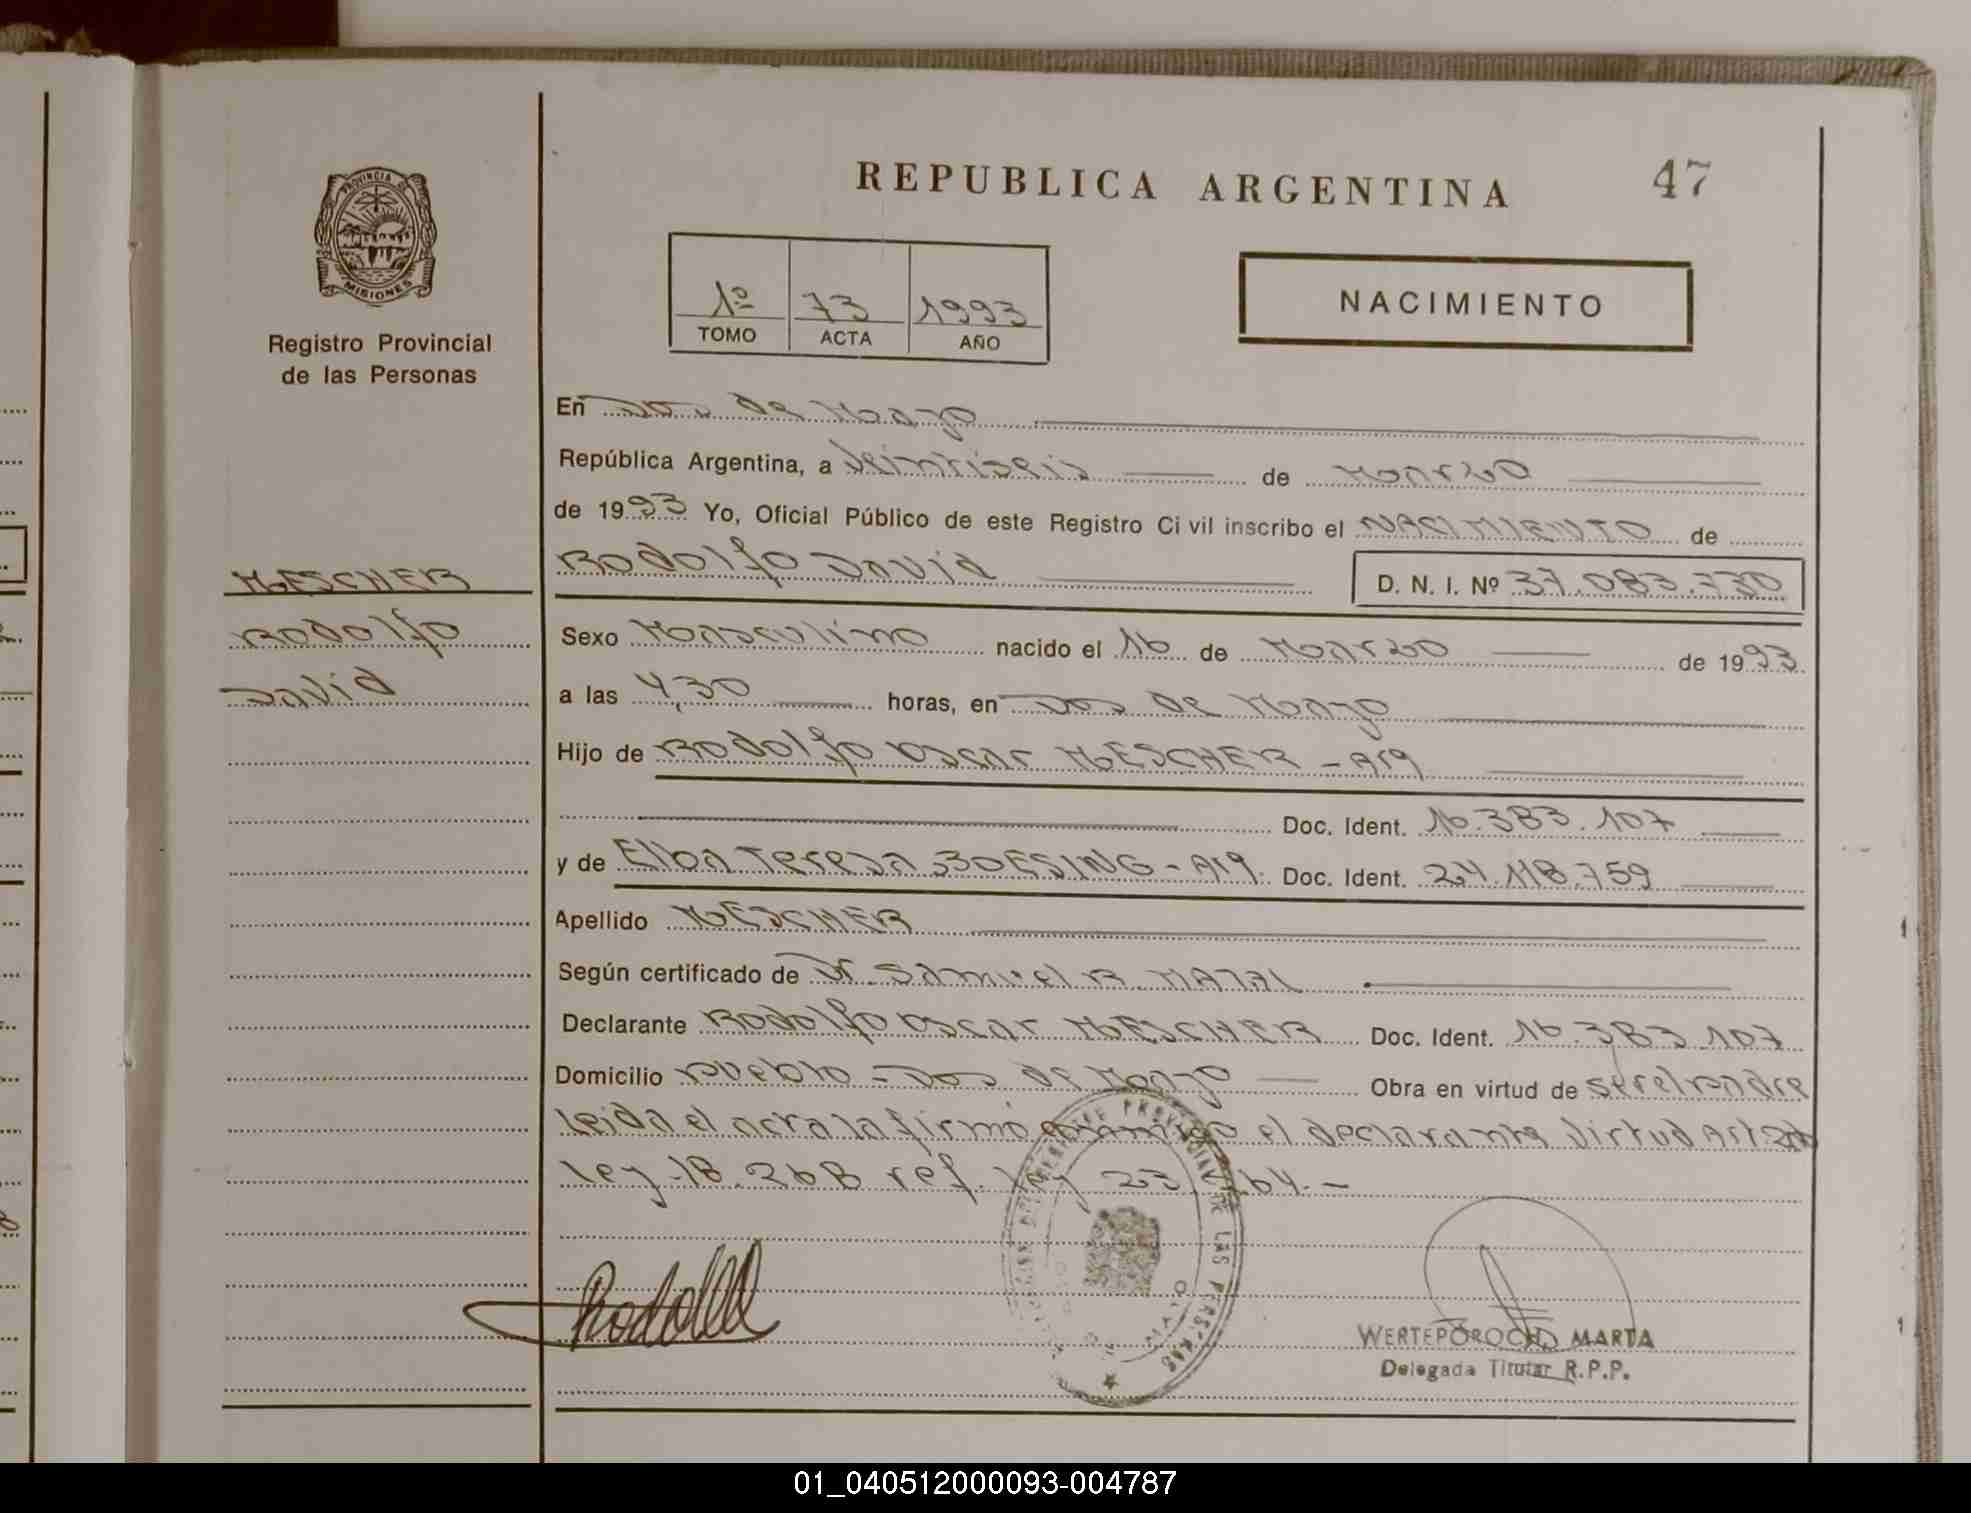 REPUBLICA ARGENTINA
47
PROVINCIA DE
MISIONES
Registro Provincial
de las Personas
1º 73 1993
TOMO ACTA AÑO
NACIMIENTO
En Dos de Mayo
República Argentina, a Veintiseis de Marzo
de 1993 Yo, Oficial Público de este Registro Civil inscribo el NACIMIENTO de
Rodolfo David D. N. I. Nº 37.083.730
MESCHER
Rodolfo
David
Sexo Masculino nacido el 16 de Marzo de 1993
a las 4,30 horas, en Dos de Mayo
Hijo de Rodolfo Oscar MESCHER - Arg
Doc. Ident. 16.383.107
y de Elba Teresa BOESING - Arg. Doc. Ident. 24.118.759
Apellido MESCHER
Según certificado de Dr. Samuel R.
Declarante Rodolfo Oscar MESCHER Doc. Ident. 16.383.107
Domicilio Pueblo - Dos de Mayo Obra en virtud de ser el padre
Leida el acta la firmó conmigo el declarante Virtud Art.
ley 18.268 ref. ley 23 64.-
Rodolfo
WERTEPOROCH, MARTA
Delegada Titular R.P.P.
01_040512000093-004787